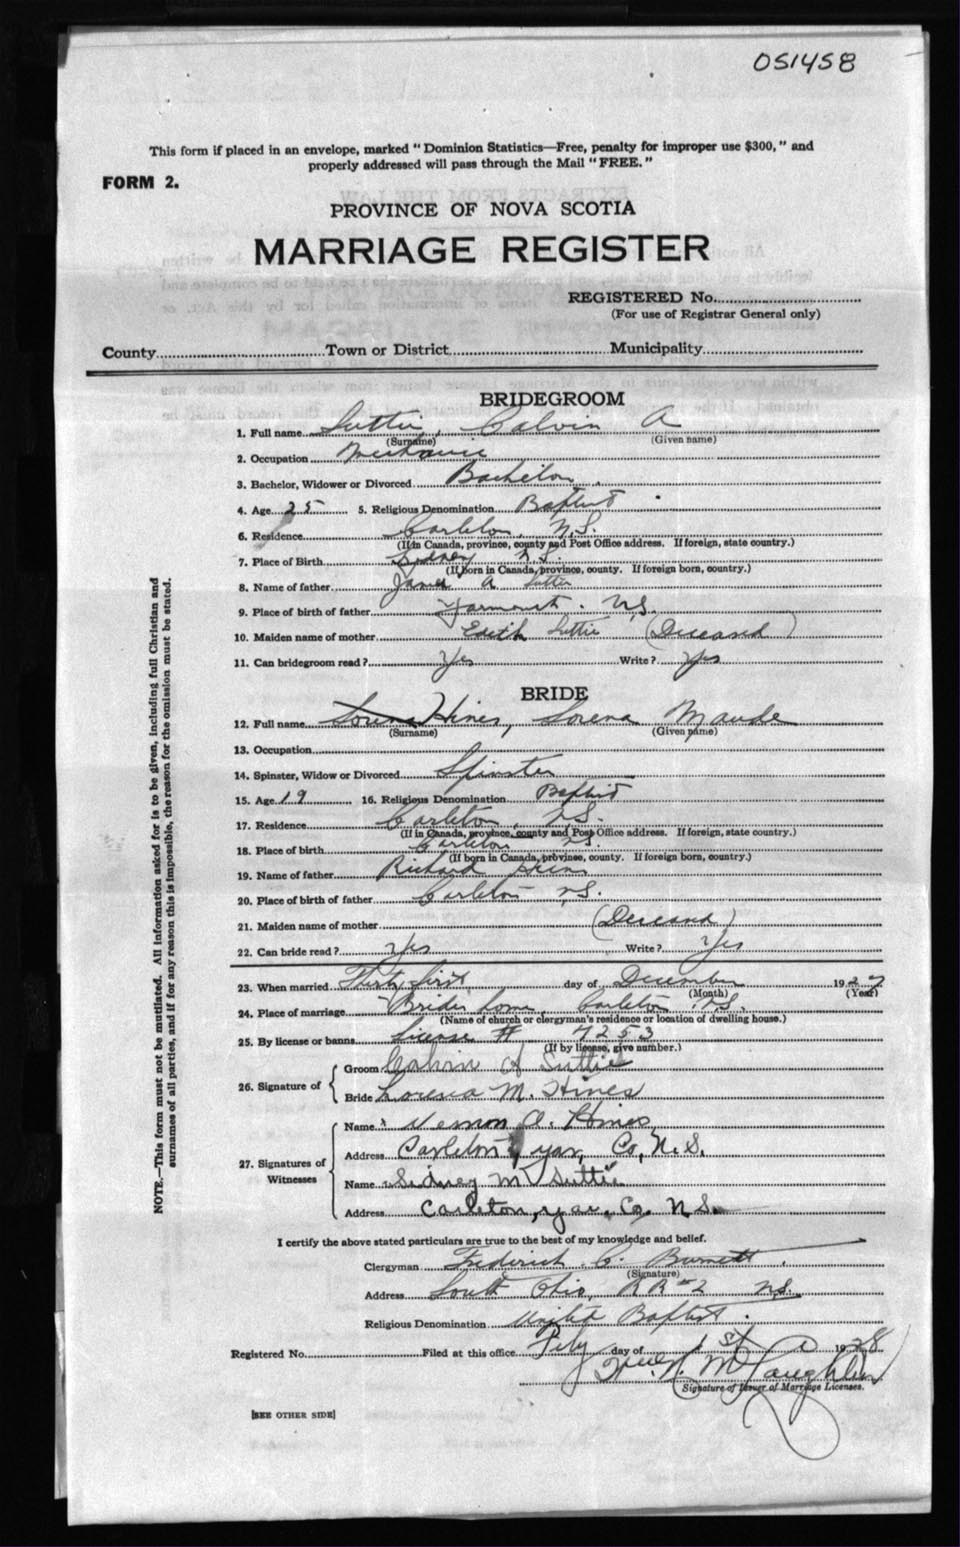 051458
This form if placed in an envelope, marked "Dominion Statistics—Free, penalty for improper use $300," and
properly addressed will pass through the Mail "FREE."
FORM 2.
PROVINCE OF NOVA SCOTIA
MARRIAGE REGISTER
REGISTERED No.
(For use of Registrar General only)
County Town or District Municipality
BRIDEGROOM
1. Full name Suttie, Calvin A
(Surname) (Given name)
2. Occupation Mechanic
3. Bachelor, Widower or Divorced Bachelor
4. Age 25 5. Religious Denomination Baptist
6. Residence Carleton, N.S.
(If in Canada, province, county and Post Office address. If foreign, state country.)
7. Place of Birth Sidney N.S.
(If born in Canada, province, county. If foreign born, country.)
8. Name of father James A Suttie
9. Place of birth of father Yarmouth. N.S.
10. Maiden name of mother Edith Suttie (Deceased)
11. Can bridegroom read? Yes Write? Yes
BRIDE
12. Full name Lorena Hines, Lorena Maude
(Surname) (Given name)
13. Occupation
14. Spinster, Widow or Divorced Spinster
15. Age 19 16. Religious Denomination Baptist
17. Residence Carleton, N.S.
(If in Canada, province, county and Post Office address. If foreign, state country.)
18. Place of birth Carleton N.S.
(If born in Canada, province, county. If foreign born, country.)
19. Name of father Richard
20. Place of birth of father Carleton N.S.
21. Maiden name of mother (Deceased)
22. Can bride read? Yes Write? Yes
23. When married Thirty first day of December 1927
(Month) (Year)
24. Place of marriage Brides home, Carleton N.S.
(Name of church or clergyman's residence or location of dwelling house.)
25. By license or banns License # 7253
(If by license, give number.)
26. Signature of
Groom Calvin A Suttie
Bride Lorena M. Hines
27. Signatures of Witnesses
Name Vernon A. Hines
Address Carleton, Yar, Co, N.S.
Name Sidney M Suttie
Address Carleton, yar. Co. N.S.
I certify the above stated particulars are true to the best of my knowledge and belief.
Clergyman Frederick C. Burnett
(Signature)
Address South Ohio, RR#2 N.S.
Religious Denomination United Baptist.
Registered No. Filed at this office Feby day of 1st 1928
McLaughlin
Signature of Issuer of Marriage Licenses.
[SEE OTHER SIDE]
NOTE.—This form must not be mutilated. All information asked for is to be given, including full Christian and
surnames of all parties, and if for any reason this is impossible, the reason for the omission must be stated.